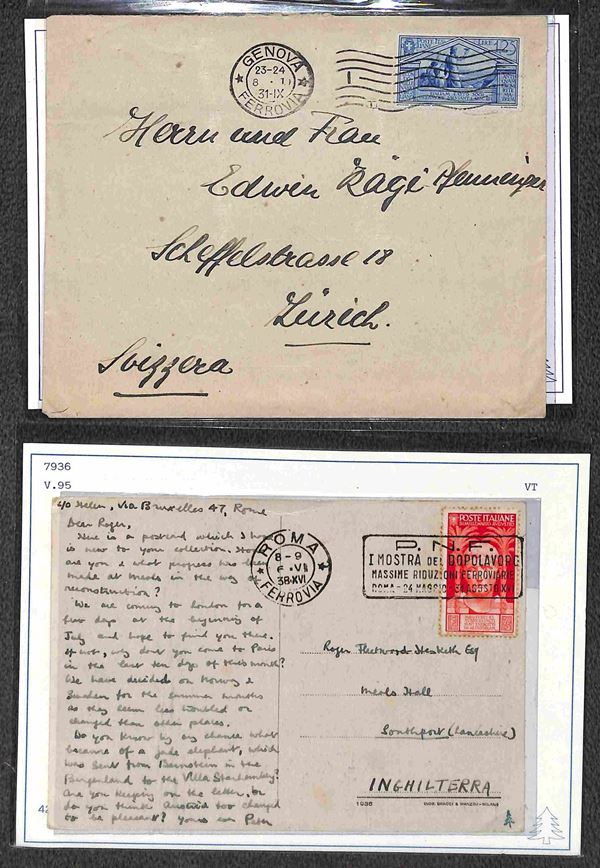 GENOVA
23-24
31-IX
FERROVIA
LIRE 1,25
Herrn und Frau
Edwin Zägi-Pfenninger
Scheffelstrasse 18
Zürich.
Svizzera
7936
V.95
VT
c/o Helen, Via Bruxelles 47, Rome
Dear Roger,
Here is a postcard which I hope
is new to your collection. How
are you & what progress was being
made at Meols in the way of
reconstruction?
We are coming to London for a
few days at the beginning of
July and hope to find you there.
If not, why don't you come to Paris
in the last ten days of this month?
We have decided on Norway &
Sweden for the summer months
as they seem less troubled or
changed than other places.
Do you know by any chance what
became of a jade elephant, which
was sent from Bernstein in the
Burgenland to the Villa Starhemberg?
Are you keeping on the letter, or
do you think Austria too changed
to be pleasant? Yours ever Peter
ROMA
8-9
38-XVI
FERROVIA
P.N.F.
I MOSTRA DEL DOPOLAVORO
MASSIME RIDUZIONI FERROVIARIE
ROMA - 24 MAGGIO - 31 AGOSTO XVI
POSTE ITALIANE
Roger Fleetwood-Hesketh Esq
Meols Hall
Southport (Lancashire)
INGHILTERRA
1936